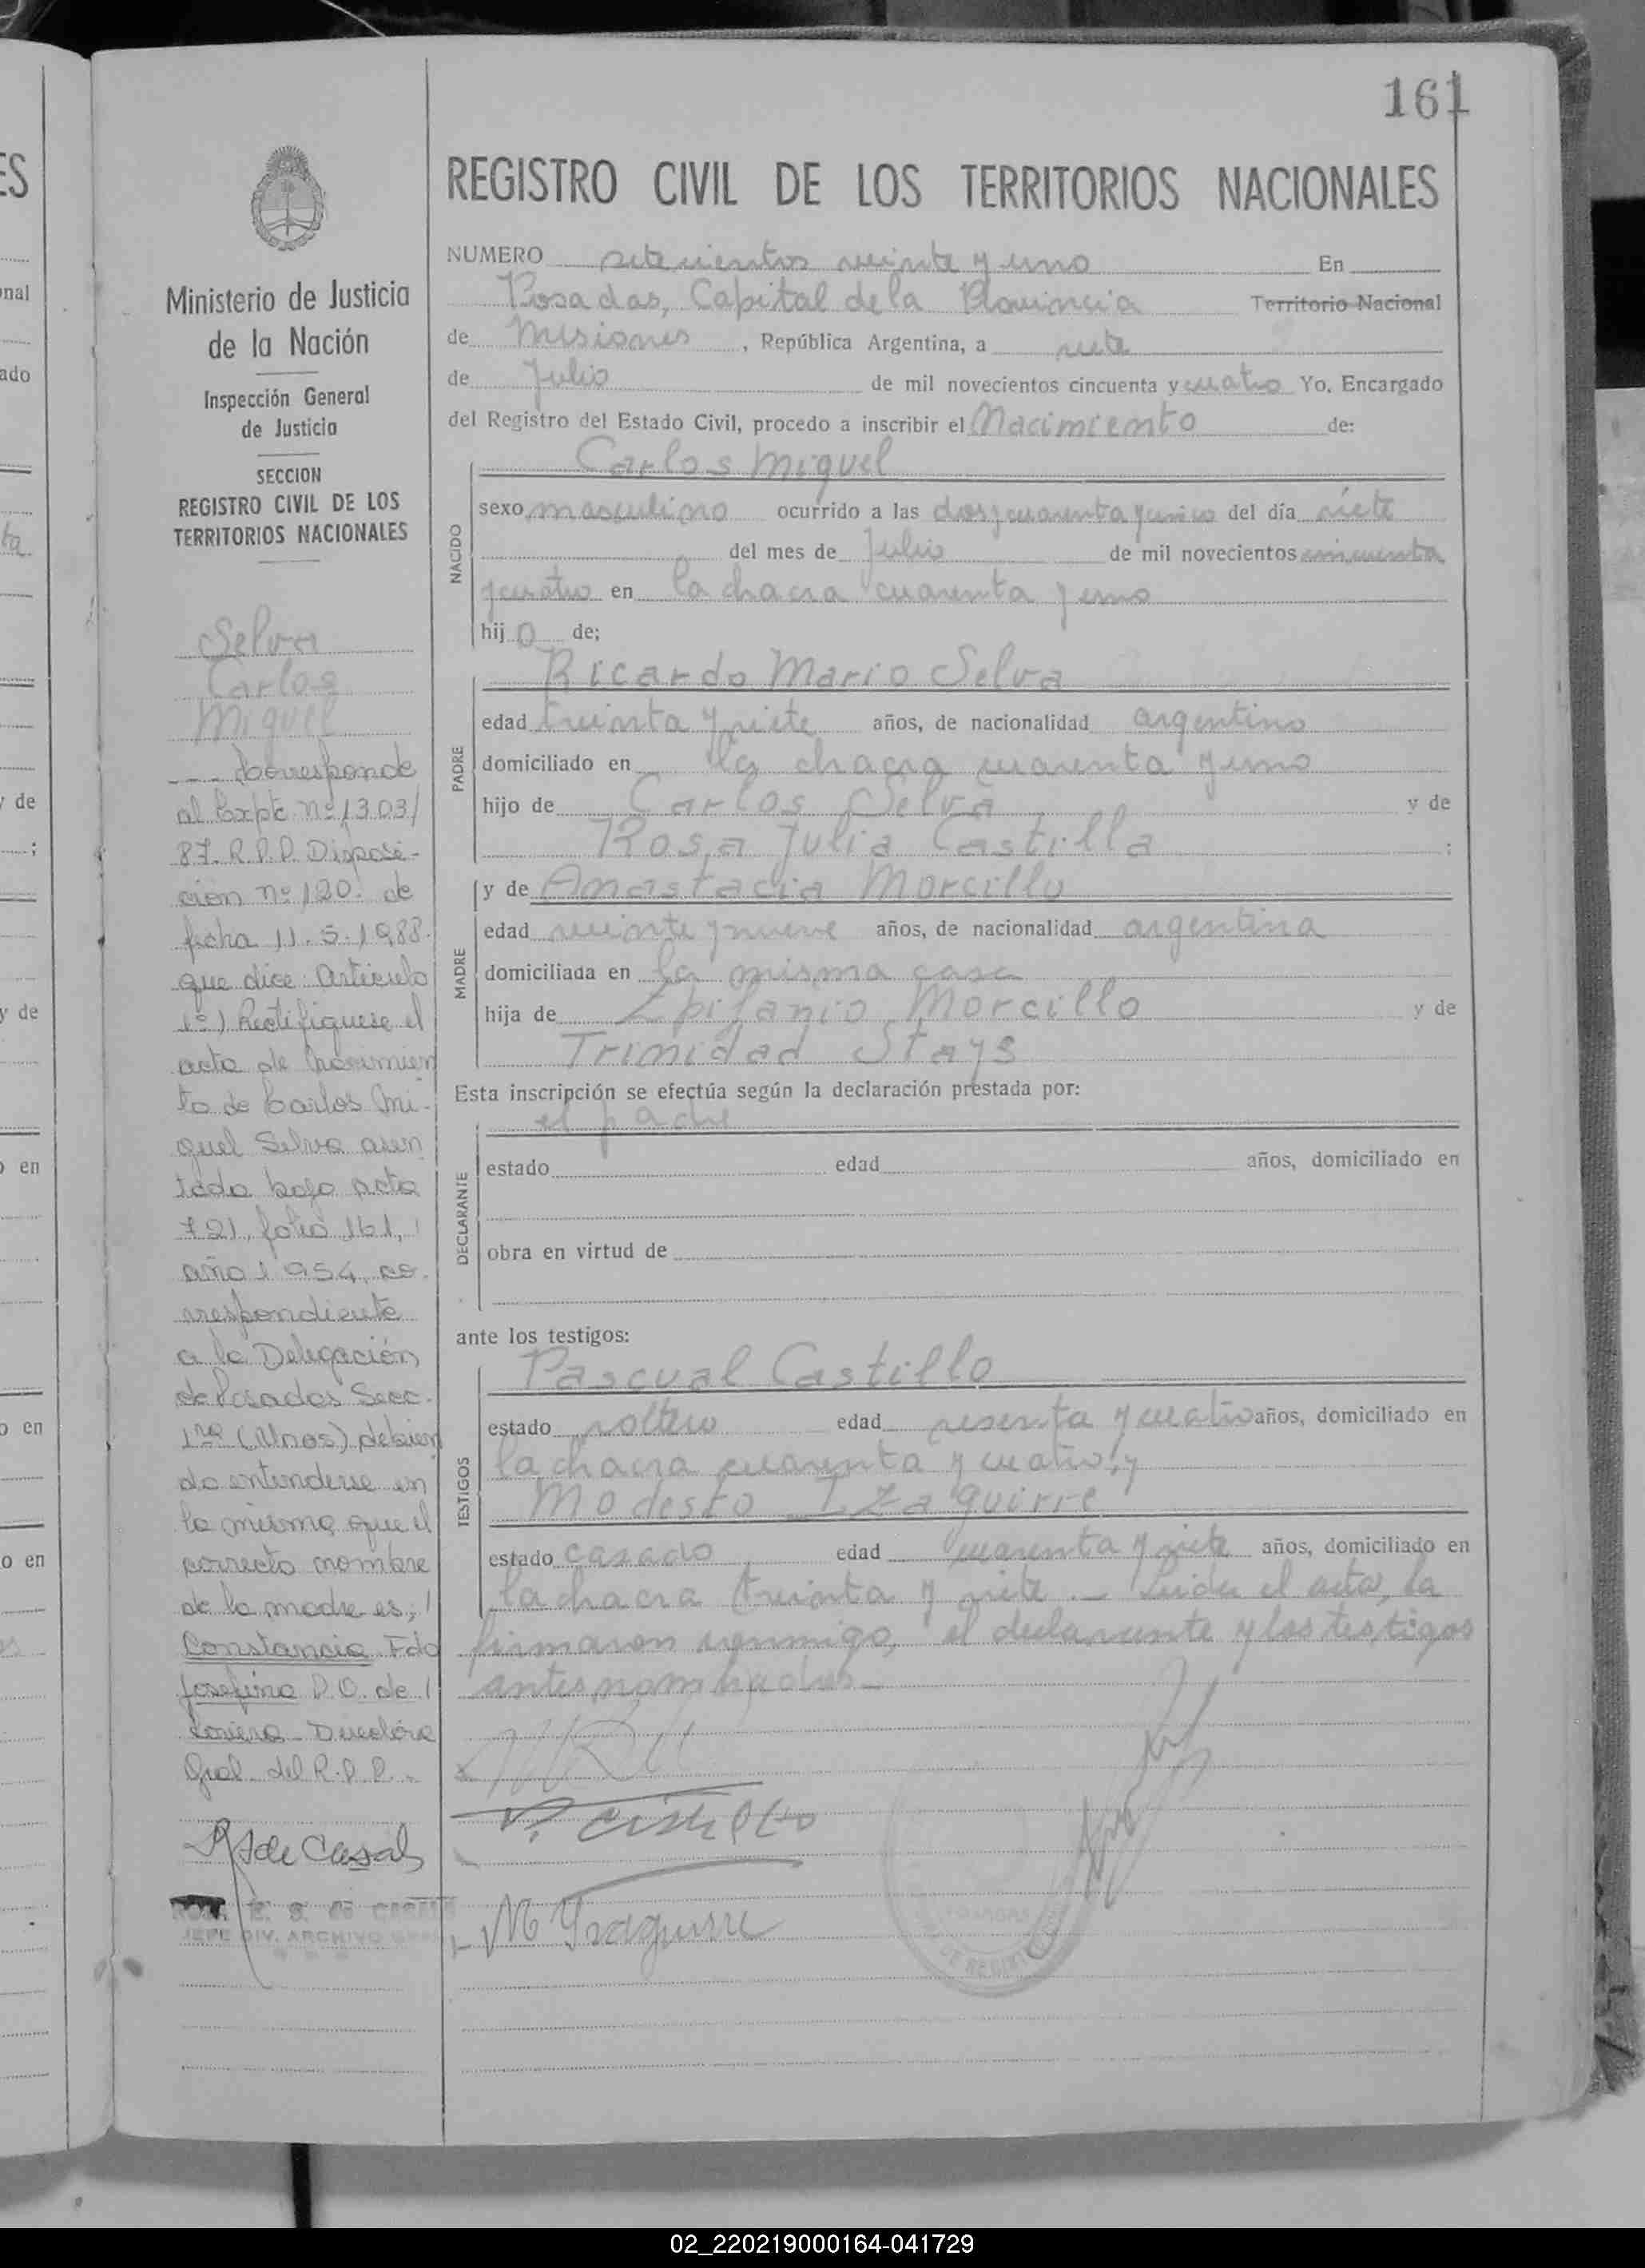 161
REGISTRO CIVIL DE LOS TERRITORIOS NACIONALES
Ministerio de Justicia
de la Nación
Inspección General
de Justicia
SECCION
REGISTRO CIVIL DE LOS
TERRITORIOS NACIONALES
Selva
Carlos
Miguel
--- Corresponde
al Expte nº 1303/
87. R.P.P. Disposi-
ción nº 120. de
fecha 11.5.1988.
que dice: Artículo
1º) Rectifíquese el
acta de Nacimien
to de Carlos Mi-
guel Selva asen
tada bajo acta
721, folio 161,
año 1954, co-
rrespondiente
a la Delegación
de Posadas Secc.
1ra (Unos) debien
do entenderse en
la misma que el
correcto nombre
de la madre es;
Constancia. Fdo
Josefina P.O. de
Directora
Gral. del R.P.P.
R S de Casal
JEFE DIV. ARCHIVO
NUMERO setecientos veinte y uno En
Posadas, Capital de la Provincia Territorio Nacional
de Misiones, República Argentina, a siete
de Julio de mil novecientos cincuenta y cuatro Yo, Encargado
del Registro del Estado Civil, procedo a inscribir el Nacimiento de:
Carlos Miguel
NACIDO
sexo masculino ocurrido a las dos y cuarenta y cinco del día siete
del mes de Julio de mil novecientos cincuenta
y cuatro en la chacra cuarenta y uno
hijo de;
Ricardo Mario Selva
PADRE
edad treinta y siete años, de nacionalidad argentino
domiciliado en la chacra cuarenta y uno
hijo de Carlos Selva y de
Rosa Julia Castilla :
y de Anastacia Morcillo
MADRE
edad veinte y nueve años, de nacionalidad argentina
domiciliada en la misma casa
hija de Epifanio Morcillo y de
Trinidad Stays
Esta inscripción se efectúa según la declaración prestada por:
el padre
DECLARANTE
estado edad años, domiciliado en
obra en virtud de
ante los testigos:
Pascual Castillo
TESTIGOS
estado soltero edad sesenta y cuatro años, domiciliado en
la chacra cuarenta y cuatro, y
Modesto Izaguirre
estado casado edad cuarenta y siete años, domiciliado en
la chacra treinta y siete.- Leída el acta, la
firmaron conmigo, el declarante y los testigos
antes nombrados.-
P. Castillo
M Yzaguirre
02_220219000164-041729